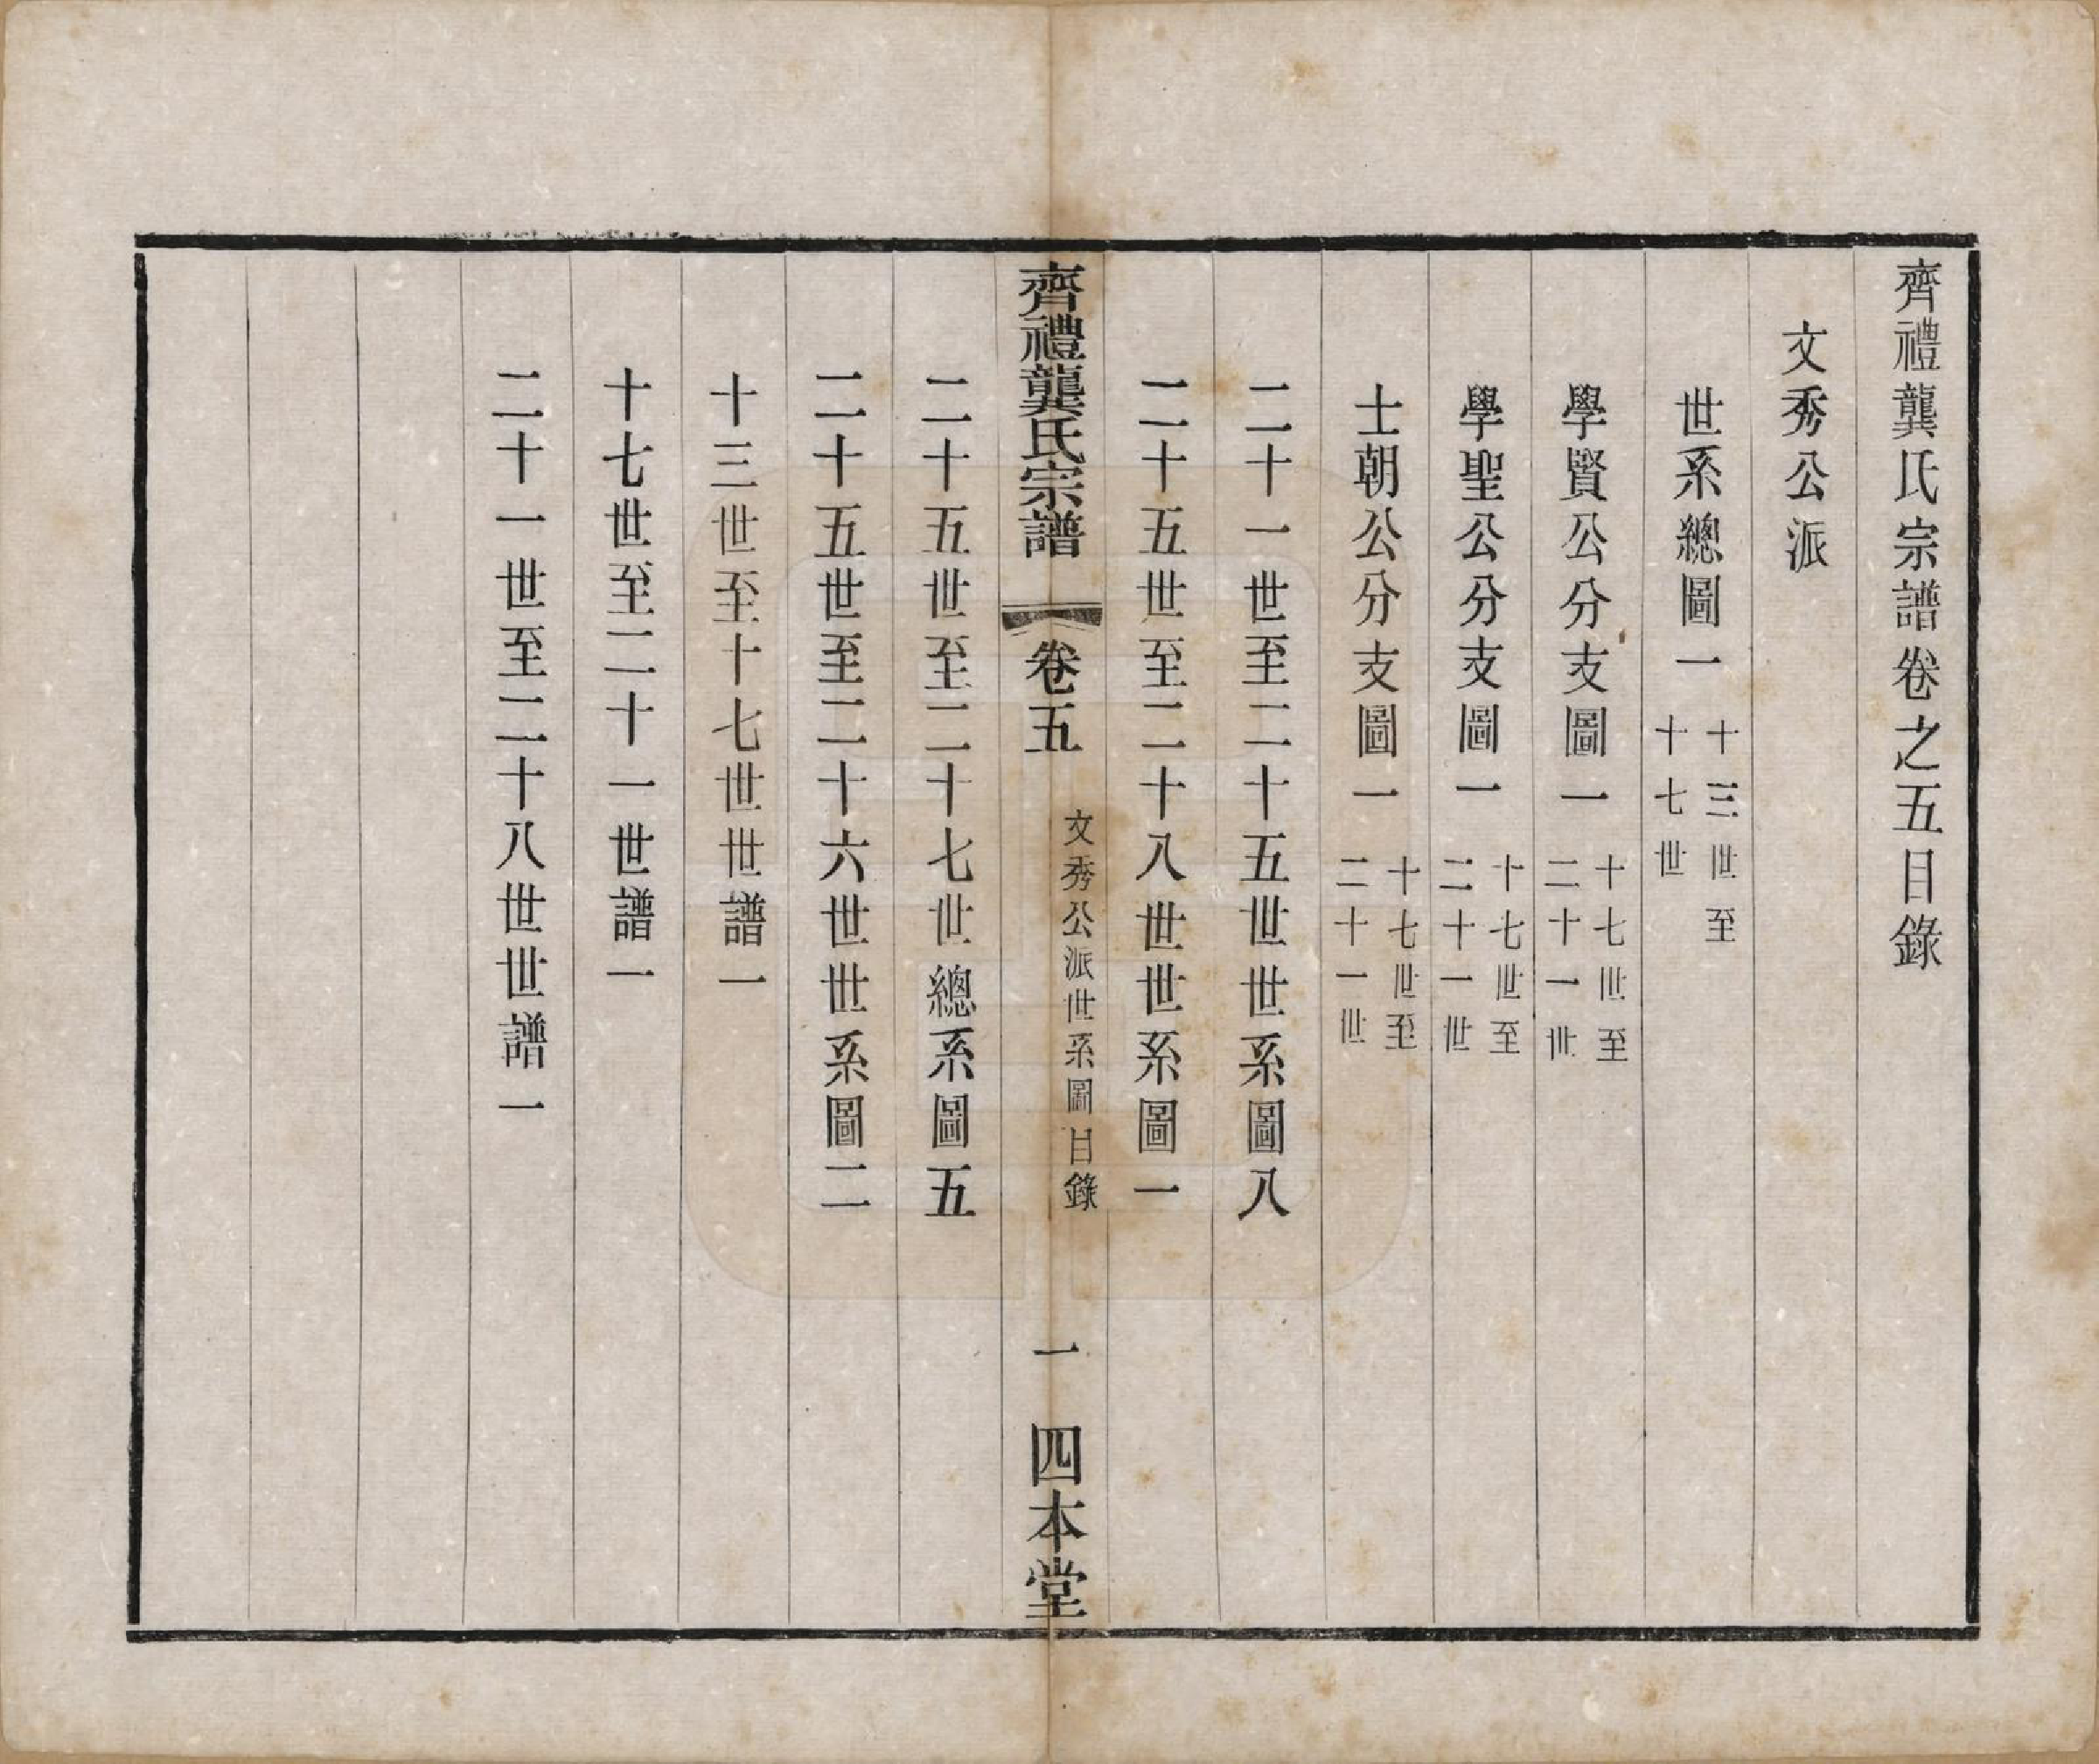 齊禮龔氏宗譜卷之五目錄
文秀公派
世系總圖一 十三世至十七世
學賢公分支圖一 十七世至二十一世
學聖公分支圖一 十七世至二十一世
士朝公分支圖一 十七世至二十一世
二十一世至二十五世世系圖八
二十五世至二十八世世系圖一
齊禮龔氏宗譜 卷五 文秀公派世系圖目錄 一 四本堂
二十五世至二十七世總系圖五
二十五世至二十六世世系圖二
十三世至十七世世譜一
十七世至二十一世譜一
二十一世至二十八世世譜一